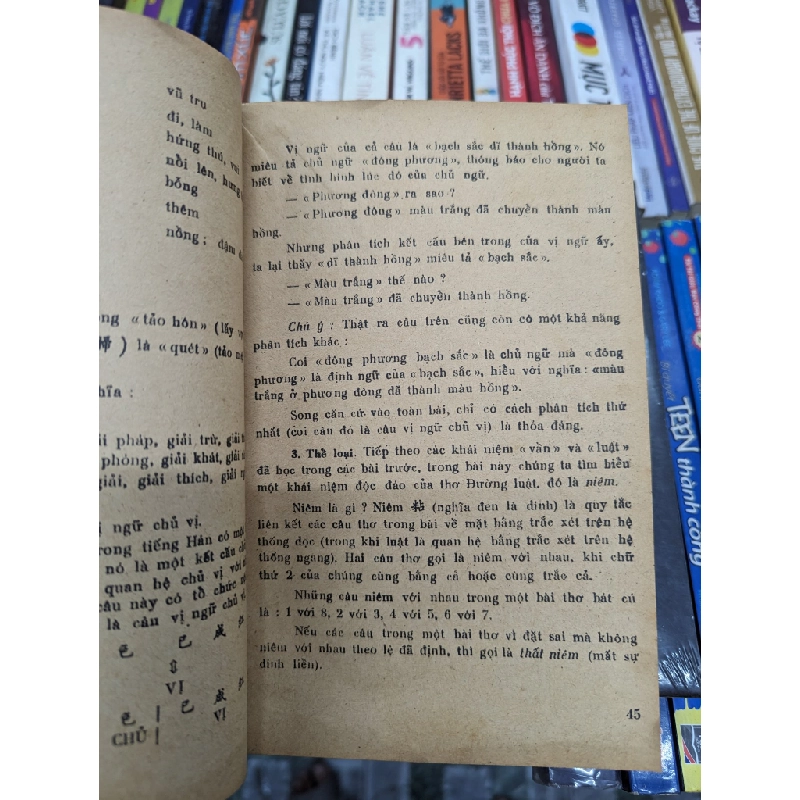 vũ trụ
đi, làm
hứng thú, vui
nổi lên, hưng
bỗng
thêm
nồng ; đậm
«tảo hôn» (lấy
) là «quét» (tảo
nghĩa :
pháp, giải trừ, giải
phóng, giải khát, giải
giải, giải thích, giải
ngữ chủ vị.
trong tiếng Hán có một
nó là một kết cấu
quan hệ chủ vị với
câu này có tổ chức
là câu vị ngữ chủ
已 已 成
⇕
VỊ
已 | 已 成
CHỦ | VỊ
Vị ngữ của cả câu là «bạch sắc dĩ thành hồng». Nó
miêu tả chủ ngữ «đông phương», thông báo cho người ta
biết về tình hình lúc đó của chủ ngữ.
— «Phương đông» ra sao ?
— «Phương đông» màu trắng đã chuyển thành màn
hồng.
Nhưng phân tích kết cấu bên trong của vị ngữ ấy,
ta lại thấy «dĩ thành hồng» miêu tả «bạch sắc».
— «Màu trắng» thế nào ?
— «Màu trắng» đã chuyển thành hồng.
Chú ý : Thật ra câu trên cũng còn có một khả năng
phân tích khác :
Coi «đông phương bạch sắc» là chủ ngữ mà «đông
phương» là định ngữ của «bạch sắc», hiểu với nghĩa : «màu
trắng ở phương đông đã thành màu hồng».
Song căn cứ vào toàn bài, chỉ có cách phân tích thứ
nhất (coi câu đó là câu vị ngữ chủ vị) là thỏa đáng.
3. Thể loại. Tiếp theo các khái niệm «vần» và «luật»
đã học trong các bài trước, trong bài này chúng ta tìm hiểu
một khái niệm độc đáo của thơ Đường luật, đó là niêm.
Niêm là gì ? Niêm 粘 (nghĩa đen là dính) là quy tắc
liên kết các câu thơ trong bài về mặt bằng trắc xét trên hệ
thống dọc (trong khi luật là quan hệ bằng trắc xét trên hệ
thống ngang). Hai câu thơ gọi là niêm với nhau, khi chữ
thứ 2 của chúng cùng bằng cả hoặc cùng trắc cả.
Những câu niêm với nhau trong một bài thơ bát cú
là : 1 với 8, 2 với 3, 4 với 5, 6 với 7.
Nếu các câu trong một bài thơ vì đặt sai mà không
niêm với nhau theo lệ đã định, thì gọi là thất niêm (mất sự
dính liền).
45
5
HENRIETTA LACKS
THẾ GIỚI
HẠNH PHÚC
MỤC
TEEN thành công